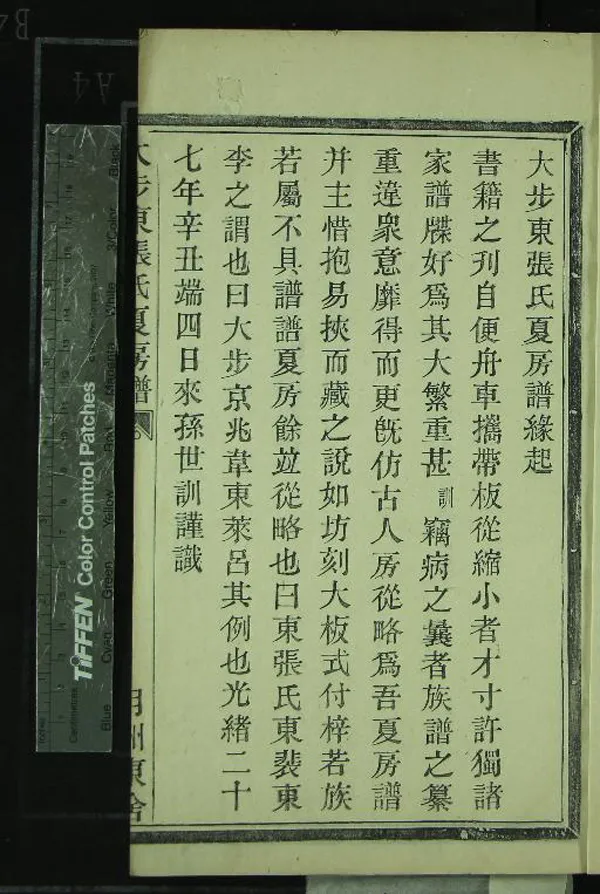 大步東張氏夏房譜緣起
書籍之刋自便舟車攜帶板從縮小者才寸許獨諸
家譜牒好爲其大繁重甚訓竊病之曩者族譜之纂
重違衆意靡得而更旣仿古人房從略爲吾夏房譜
并主惜抱易挾而藏之說如坊刻大板式付梓若族
若屬不具譜譜夏房餘竝從略也曰東張氏東裴東
李之謂也曰大步京兆韋東萊呂其例也光緒二十
七年辛丑端四日來孫世訓謹識
大步東張氏夏房譜
月州東舍
TIFFEN Color Control Patches
Blue Cyan Green Yellow Red Magenta White 3/Color Black
Centimetres
A4